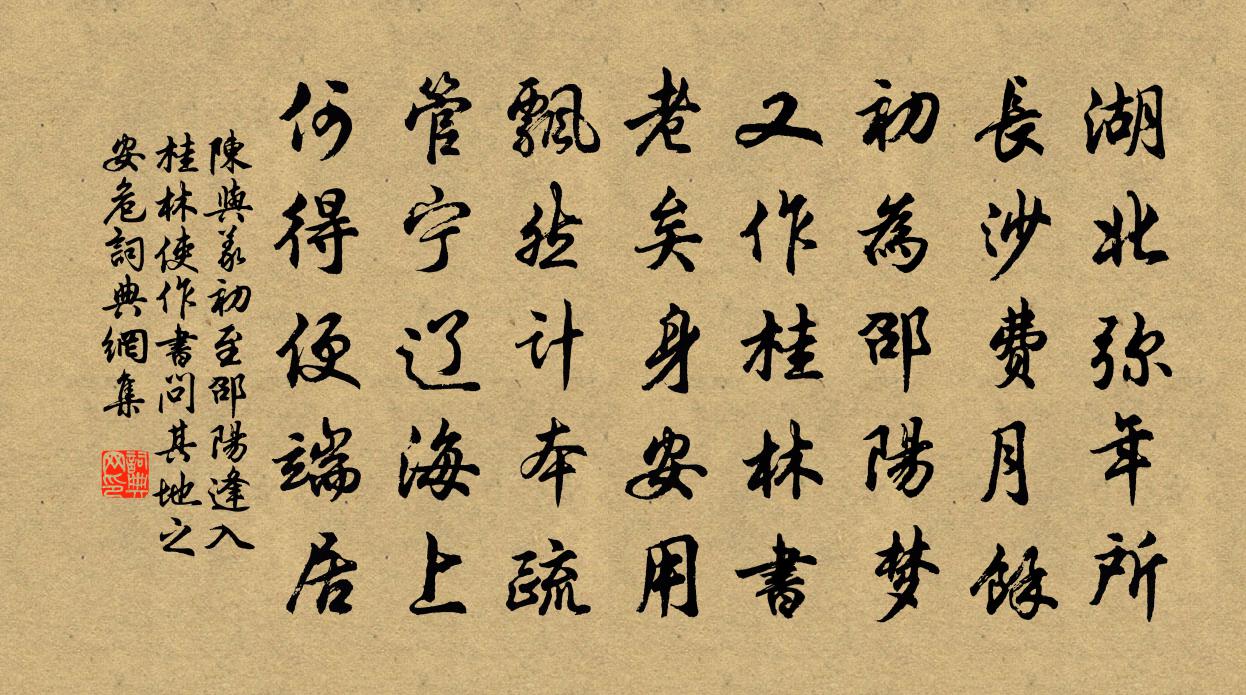 湖北弥年所
長沙費月餘
初為邵陽梦
又作桂林書
老矣身安用
飄然计本疏
管宁辽海上
何得便端居
陳與義初至邵陽逢入
桂林使作書问其地之
安危詞典網集
詞典网印